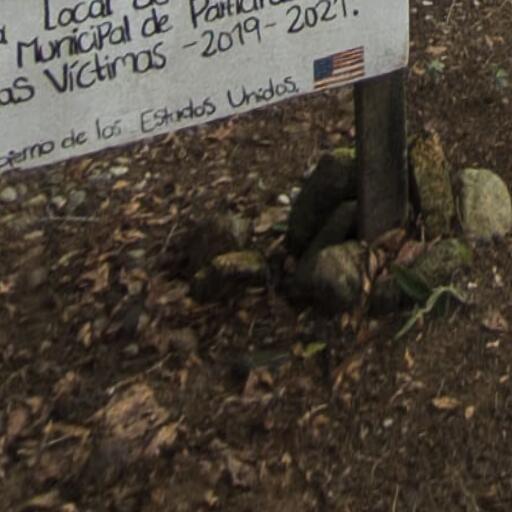 Local
Municipal de
as Víctimas - 2019 - 2021.
ierno de los Estados Unidos.